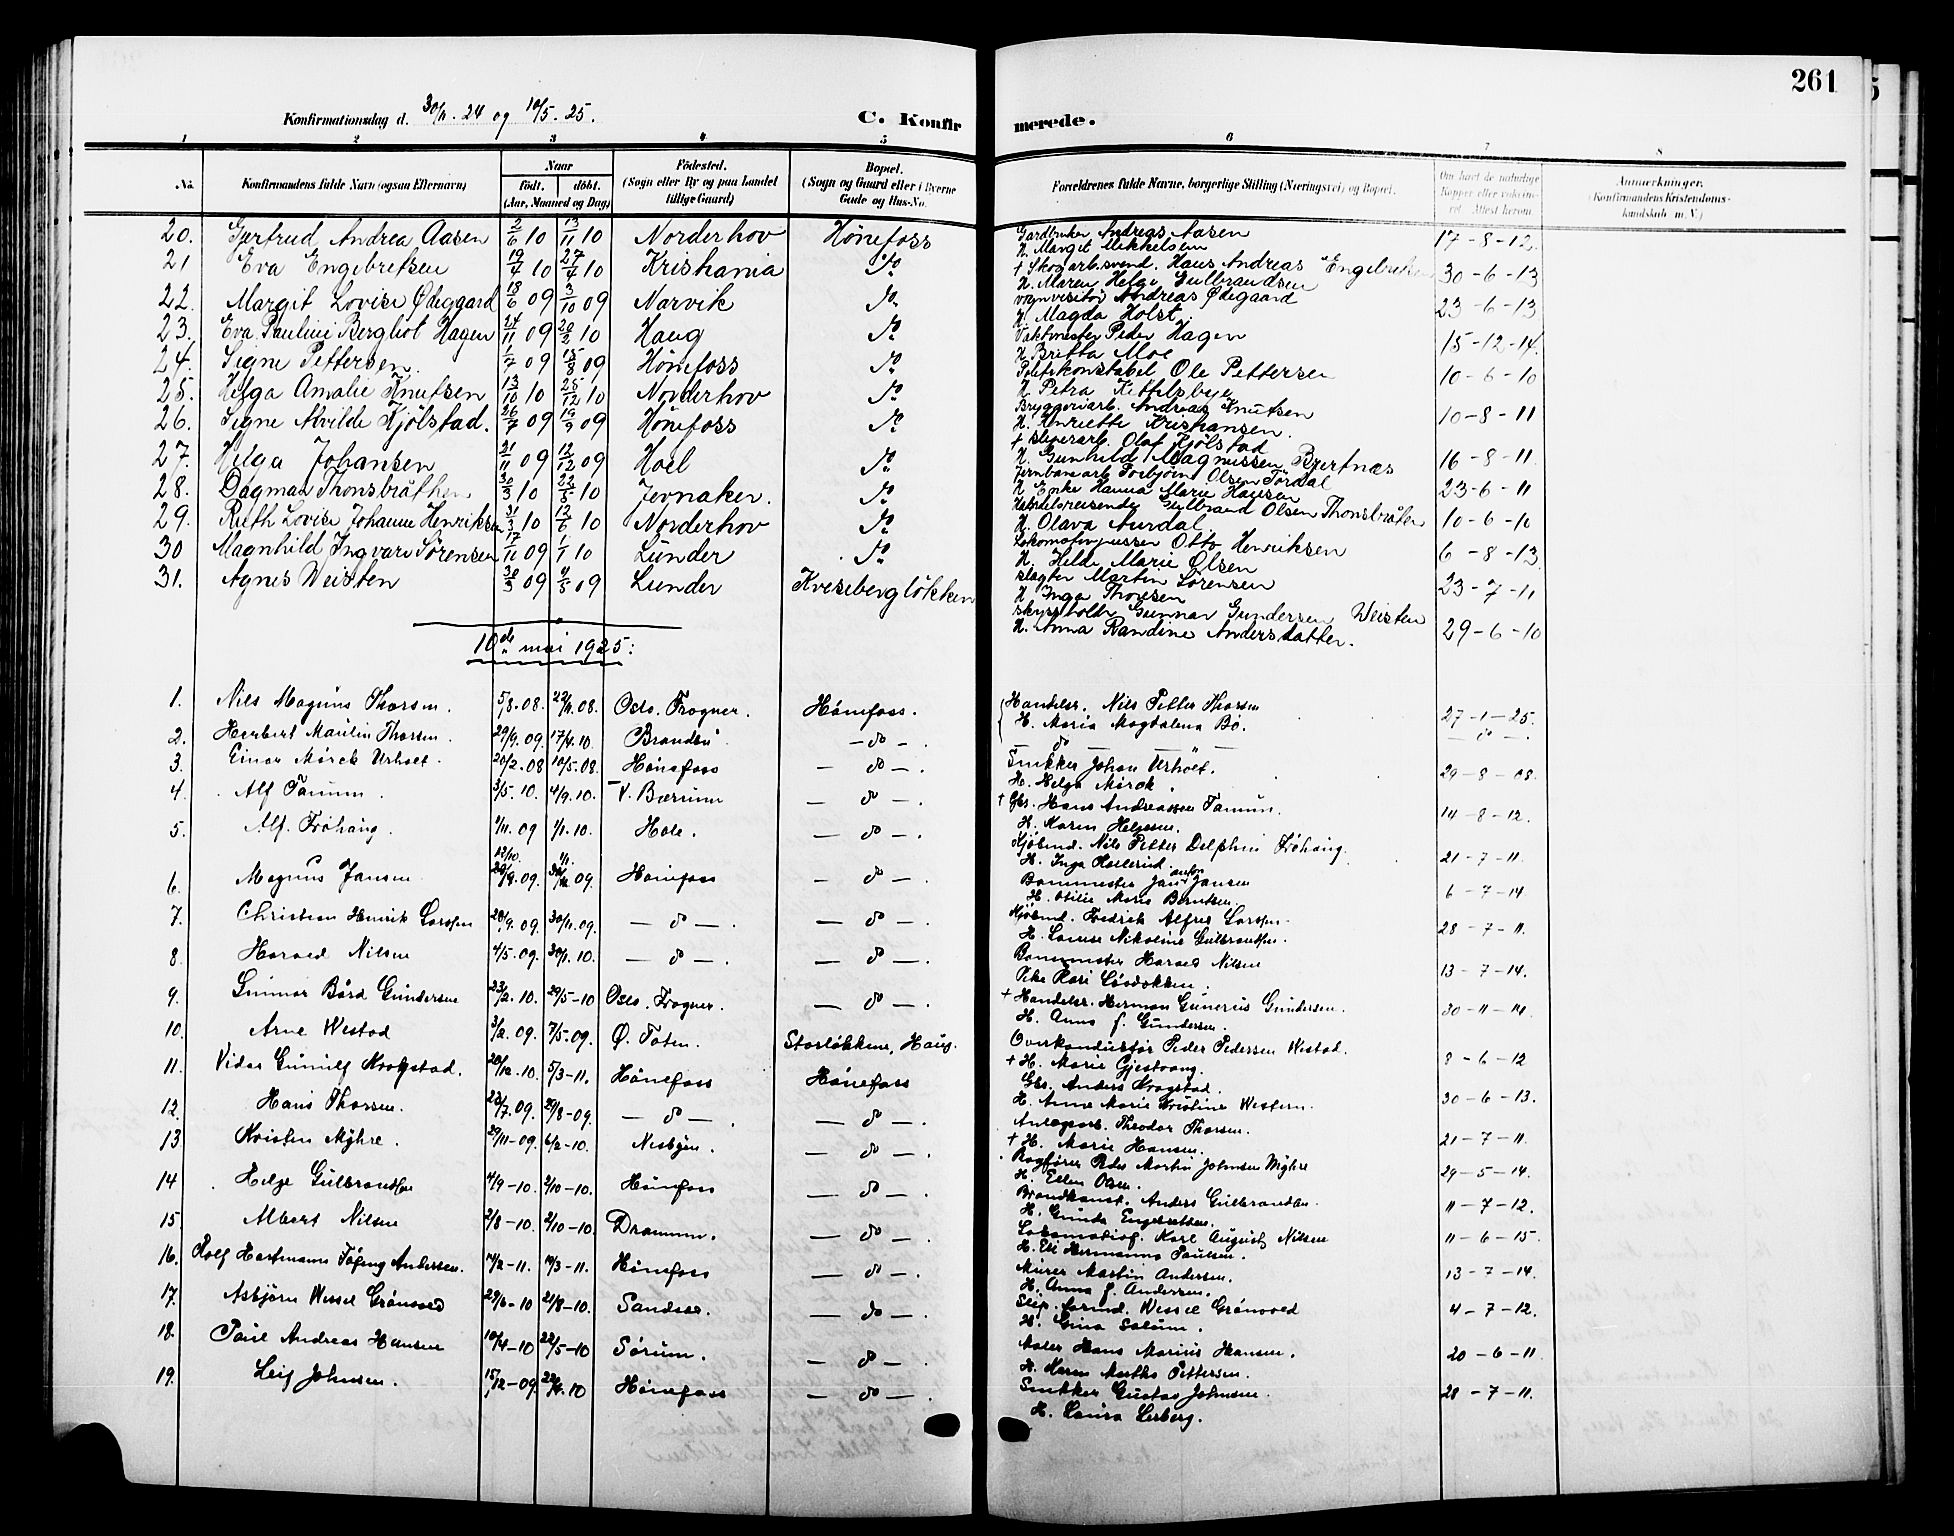 261
Konfirmationsdag d. 30/11. 24 og 10/5. 25.
C. Konfirmerede.
1 2 3 4 5 6 7 8
No. Konfirmandens fulde Navn (ogsaa Efternavn) Naar født. døbt. (Aar, Maaned og Dag) Fødested. (Sogn eller By og paa Landet tillige Gaard) Bopæl. (Sogn og Gaard eller i Byerne Gade og Hus-No. Forældrenes fulde Navne, borgerlige Stilling (Næringsvei) og Bopæl. Om havt de naturlige Kopper eller vaccineret. Attest herom. Anmerkninger. (Konfirmandens Kristendomskundskab m. V.)
20. Gjertrud Andrea Aasen 2/6 10 13/11 10 Norderhov Hønefoss Gardbruker Andreas Aasen 17-8-12
H. Margit Mikkelsen
21 Eva Engebretsen 19/4 10 27/4 10 Kristiania Do. + Skogarb.svend. Hans Andreas Engebretsen 30-6-13
H. Maren Helge Gulbrandsen
22. Margit Lovise Ødegaard 18/6 09 3/10 09 Narvik Do. vognvisitør Andreas Ødegaard 23-6-13
H. Magda Holst.
23. Eva Pauline Bergliot Hagen 24/11 09 20/2 10 Haug Do. Taktmester Peder Hagen 15-12-14.
H. Britta Moe
24. Signe Pettersen. 1/7 09 15/8 09 Hønefoss Do. Politikonstabel Ole Pettersen 10-6-10
H. Petra Kittelsbye
25. Helga Amalie Knutsen 13/10 10 25/12 10 Norderhov Do. Bryggeriarb. Andreas Knutsen 10-8-11
H. Henriette Kristiansen.
26. Signe Alvilde Kjölstad. 26/7 09 19/9 09 Hønefoss Do. + sliperarb. Olaf Kjölstad 16-8-11
H. Gunhild Magnussen Bjertnæs
27. Helga Johansen 21/11 09 12/12 09 Hoel Do. Jernbanearb Torbjörn Olsen Tørdal 23-6-11
H. Enke Hanna Marie Hansen
28. Dagmar Thonsbråthen 30/3 10 22/5 10 Jevnaker. Do. Handelsreisende Gulbrand Olsen Thonsbråten 10-6-10
H. Olava Aurdal.
29. Ruth Lovise Johanne Henriksen 31/3 10 12/6 10 Norderhov Do. Lokomotivpusser Otto Henriksen 6-8-13
H. Helde Marie Olsen
30 Magnhild Ingvare Sørensen 17/11 09 1/1 10 Lunder Do. slagter Martin Sørensen 23-7-11
H. Inga Thoresen
31. Agnes Weisten 30/3 09 9/5 09 Lunder Kveseberglökken skyssholder Gunnar Gundersen Weisten 29-6-10
H. Anna Randine Andersdatter.
10de mai 1925:
1. Nils Magnus Thorsen. 5/8.08. 22/11.08. Oslo. Frogner. Hønefoss. Handelsr. Nils Petter Thorsen 27-1-25.
H. Maria Magdalena Bø.
2. Herbert Maulin Thorsen. 29/9.09. 17/4.10. Brandbu. -do-. -do- -do-.
3. Einar Mørck Urholt. 20/2.08 10/5.08. Hønefoss -do-. Snekker Johan Urholt. 29-8-08.
H. Helga Mørck.
4. Alf Tanum. 3/5.10. 4/9.10. V. Bærum -do-. + Gbr. Hans Andreassen Tanum. 14-8-12.
H. Karen Helgesen.
5. Alf. Fröhaug. 9/11.09 1/1.10. Hole. -do-. Kjøbmd. Nils Petter Delphin Fröhaug. 21-7-11.
H. Inga Hallerud.
6. Magnus Jansen 12/10. 1/1. Hønefoss -do-. Bommester Jan Anton Jansen 6-7-14
H. Otilie Marie Berntsen
7. Christian Henrik Larssen 20/9.09. 30/11.09. -do-. -do-. Kjøbmd. Fredrik Alfred Larssen. 28-7-11.
H. Louise Nikoline Gulbrandsen.
8. Harald Nilsen 4/5.09. 30/1.10. -do-. -do-. Bommester Harald Nilsen 13-7-14.
Pike Kari Løvdokken.
9. Gunnar Bård Gundersen 23/2.10. 29/5-10 Oslo. Frogner. -do-. + Handelsr. Herman Gunerius Gundersen. 30-11-14.
H. Anna f. Gundersen.
10. Arne Westad 3/2.09. 7/5-09. Ø. Toten. Storløkken, Haug. Overkonduktør Peder Pedersen Westad. 8-6-12
+ H. Marie Gjestvang.
11. Vidar Gunulf Krogstad. 20/12.10. 5/3-11. Hönefoss Hønefoss Gbr. Anders Krogstad. 30-6-13.
H. Anne Marie Kristine Western.
12. Hans Thorsen. 23/7.09. 29/8-09. -do-. -do-. Anlegsarb. Theodor Thorsen. 21-7-11.
+ H. Marie Hansen.
13 Kristen Myhre. 29/11-09. 6/2-10. Nesbyen. -do-. Rogfører Peder Martin Johnsen Myhre 29-5-14.
H. Ellen Olsen.
14 Helge Gulbrandsen 4/9-10. 2/10-10. Hønefoss -do-. Brandkonst. Anders Gulbrandsen. 11-7-12.
H. Gunda Engebretsen.
15. Albert Nilsen 2/8-10. 2/10-10. Drammen. -do-. Lokomotivf. Karl August Nilsen 11-6-15.
H. Eli Hermanna Paulsen.
16. Rolf Hartmann Andersen. 14/2-11. 19/3-11. Hønefoss -do-. Murer Martin Andersen. 13-7-14.
H. Anna f. Andersen.
17. Asbjörn Wessel Grønvold 29/6-10 21/8-10. Sandsvær. -do-. Slip.formd. Wessel Grønvold 4-7-12.
H. Gina Solum.
18. Paul Andreas Hansen 10/4-10 22/5-10 Sørum. -do-. Maler Hans Marius Hansen. 20-6-11
H. Karen Marthe Pettersen.
19. Leif Johnsen. 15/12-09. Hønefoss -do-. Snekker Gustav Johnsen. 28-7-11.
H. Laura Lerberg.